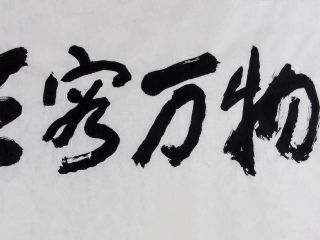 容万物